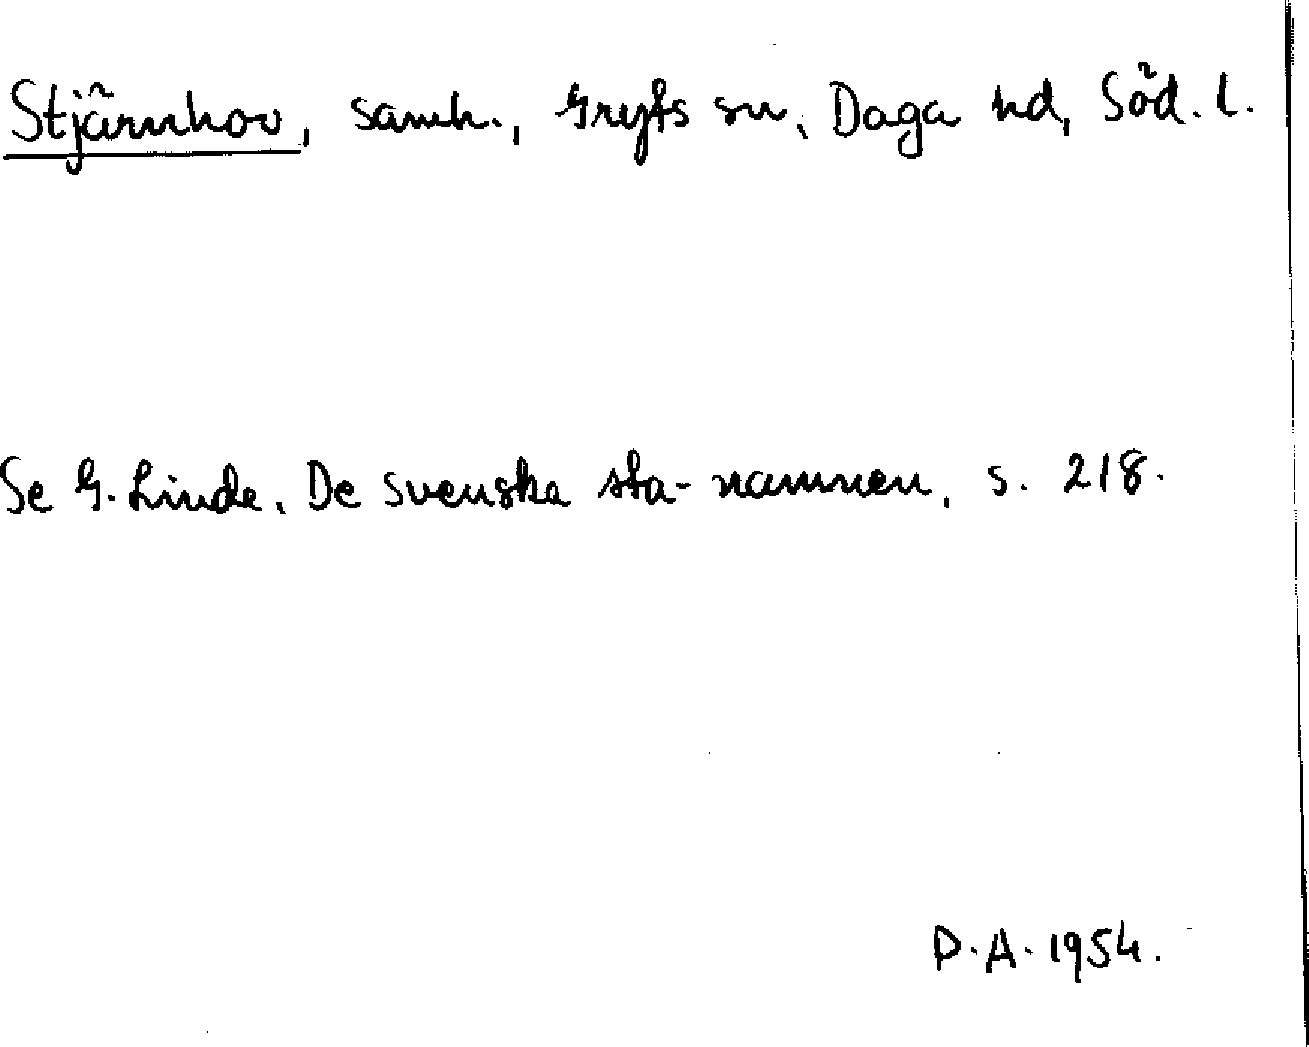 Stjärnhov, samh., Gryts sn, Daga hd, Söd. l.
Se G. Linde, De svenska sta-namnen, s. 218.
P.A. 1954.